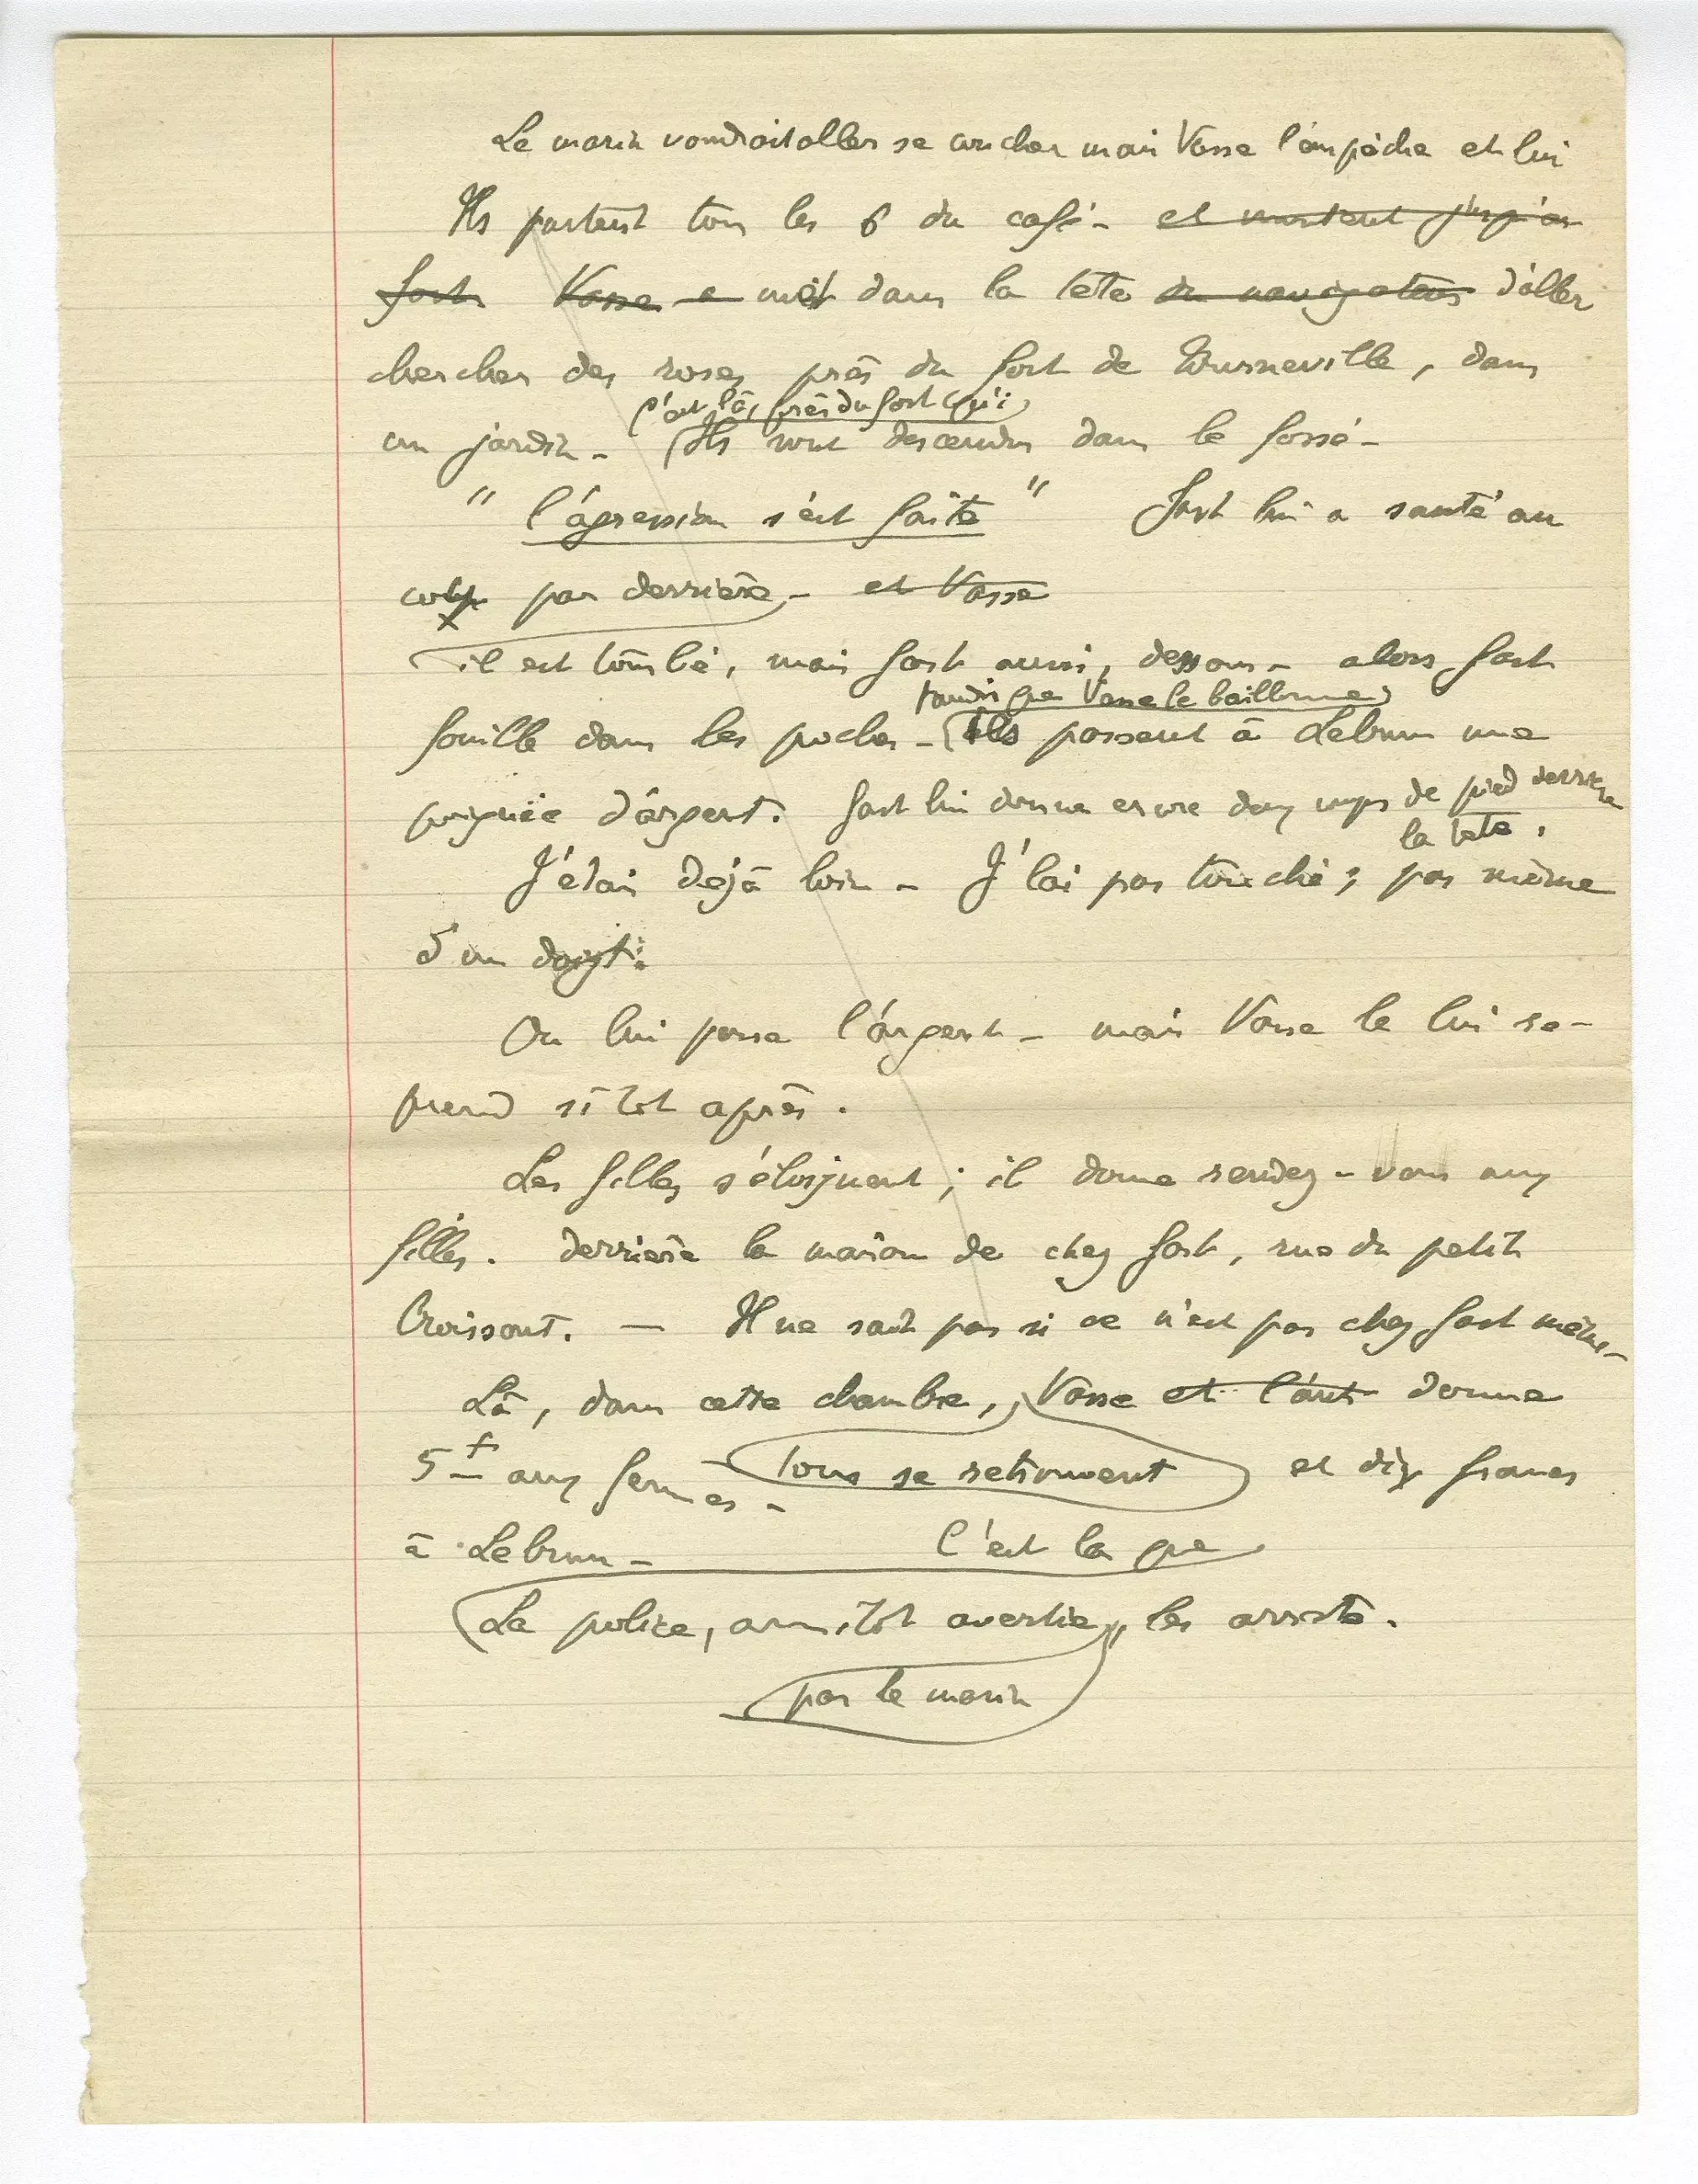 Le marin voudrait aller se coucher mais Vasse l'empêche et lui
Ils partent tous les 6 du café - et montent jusqu'au
fort Vasse a met dans la tête du navigateur d'aller
chercher des roses près du fort de Tourneville, dans
c'est là, près du fort qu'i
un jardin - Ils sont descendus dans le fossé -
" l'agression s'est faite " Fort lui a sauté au
par derrière - et Vasse
il est tombé, mais fort aussi, dessous - alors fort
tandis que Vasse le baillonne
fouille dans les poches - Ils passent à Lebrun une
poignée d'argent. fort lui donne encore deux coups de pied derrière
la tête.
J'étais déjà loin - J'l'ai pas touché ; pas même
d'un doigt.
On lui passe l'argent - mais Vasse le lui re-
prend sitôt après.
Les filles s'éloignent ; il donne rendez-vous aux
filles. derrière la maison de chez fort, rue du petit
Croissant. — Il ne sait pas si ce n'est pas chez fort même -
Là, dans cette chambre, Vasse et l'aut donne
5 f aux femmes - tous se retrouvent et dix francs
à Lebrun - C'est la que
La police, aussitôt avertie, les arrête.
par le marin